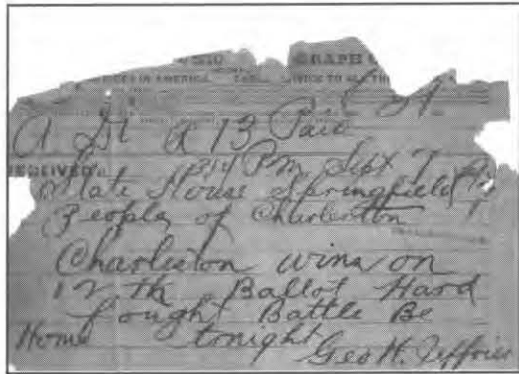 GRAPH
IN AMERICA. CABLE SERVICE TO ALL TH
A Dt A 13 Paid
RECEIVED 314 PM Sept 7
State House Springfield
People of Charleston
Charleston wins on
12th Ballot Hard
fought Battle Be
Home tonight
Geo H. Jeffries